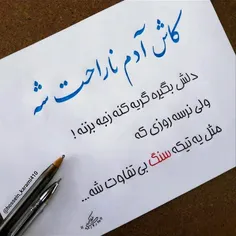 کاش آدم ناراحت شه
دلش بگیره گریه کنه زجه بزنه !
ولی نرسه روزی که
مثل یه تیکه سنگ بی تفاوت شه...
@hossein_karami410